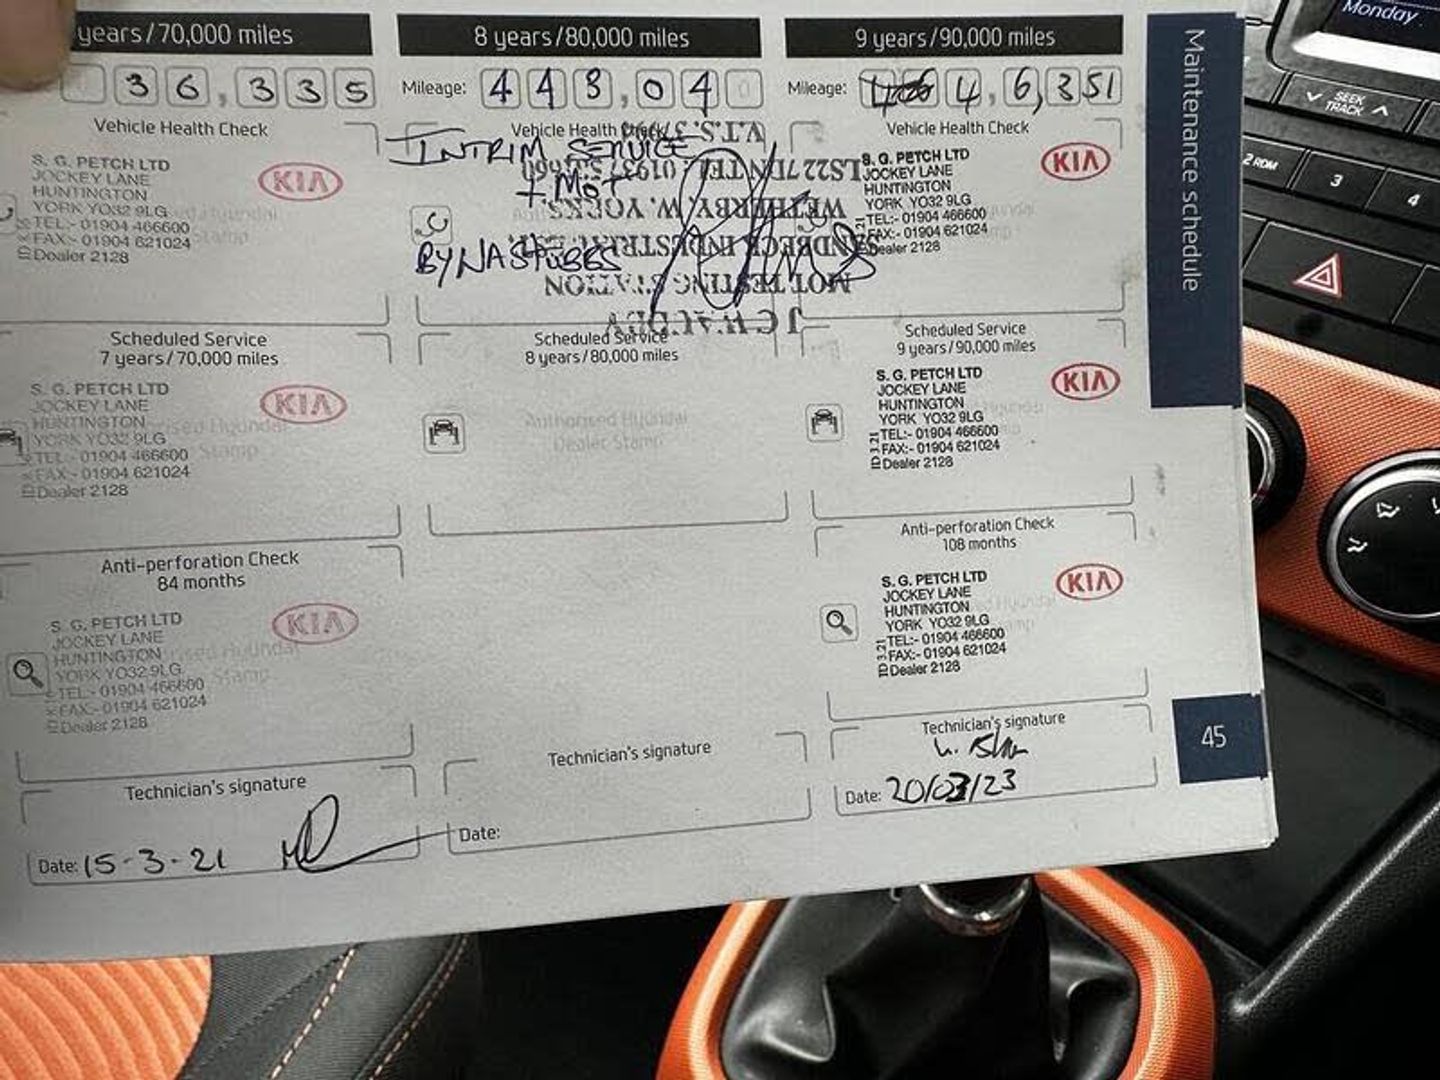 years/70,000 miles
36,335
Vehicle Health Check
S. G. PETCH LTD
JOCKEY LANE
HUNTINGTON
YORK YO32 9LG
TEL:- 01904 466600
FAX:- 01904 621024
Dealer 2128
KIA
Scheduled Service
7 years/70,000 miles
S. G. PETCH LTD
JOCKEY LANE
HUNTINGTON
YORK YO32 9LG
TEL:- 01904 466600
FAX:- 01904 621024
Dealer 2128
KIA
Anti-perforation Check
84 months
S. G. PETCH LTD
JOCKEY LANE
HUNTINGTON
YORK YO32 9LG
TEL:- 01904 466600
FAX:- 01904 621024
Dealer 2128
KIA
Technician's signature
Date: 15-3-21
8 years/80,000 miles
Mileage: 448,04
Vehicle Health Check
INTRIM SERVICE
+ MOT
BY NASTUBES
MOT TESTING STATION
SANDBECK INDUSTRIAL EST.
WETHERBY, W. YORKS
V.T.S.
Scheduled Service
8 years/80,000 miles
Authorised Hyundai
Dealer Stamp
Technician's signature
Date:
9 years/90,000 miles
Mileage: 4,6,351
Vehicle Health Check
S. G. PETCH LTD
JOCKEY LANE
HUNTINGTON
YORK YO32 9LG
TEL:- 01904 466600
FAX:- 01904 621024
Dealer 2128
KIA
Scheduled Service
9 years/90,000 miles
S. G. PETCH LTD
JOCKEY LANE
HUNTINGTON
YORK YO32 9LG
TEL:- 01904 466600
FAX:- 01904 621024
Dealer 2128
ID 3.21
KIA
Anti-perforation Check
108 months
S. G. PETCH LTD
JOCKEY LANE
HUNTINGTON
YORK YO32 9LG
TEL:- 01904 466600
FAX:- 01904 621024
Dealer 2128
ID 3.21
KIA
Technician's signature
Date: 20/03/23
Maintenance schedule
45
Monday
SEEK
TRACK
2 RDM
3
4